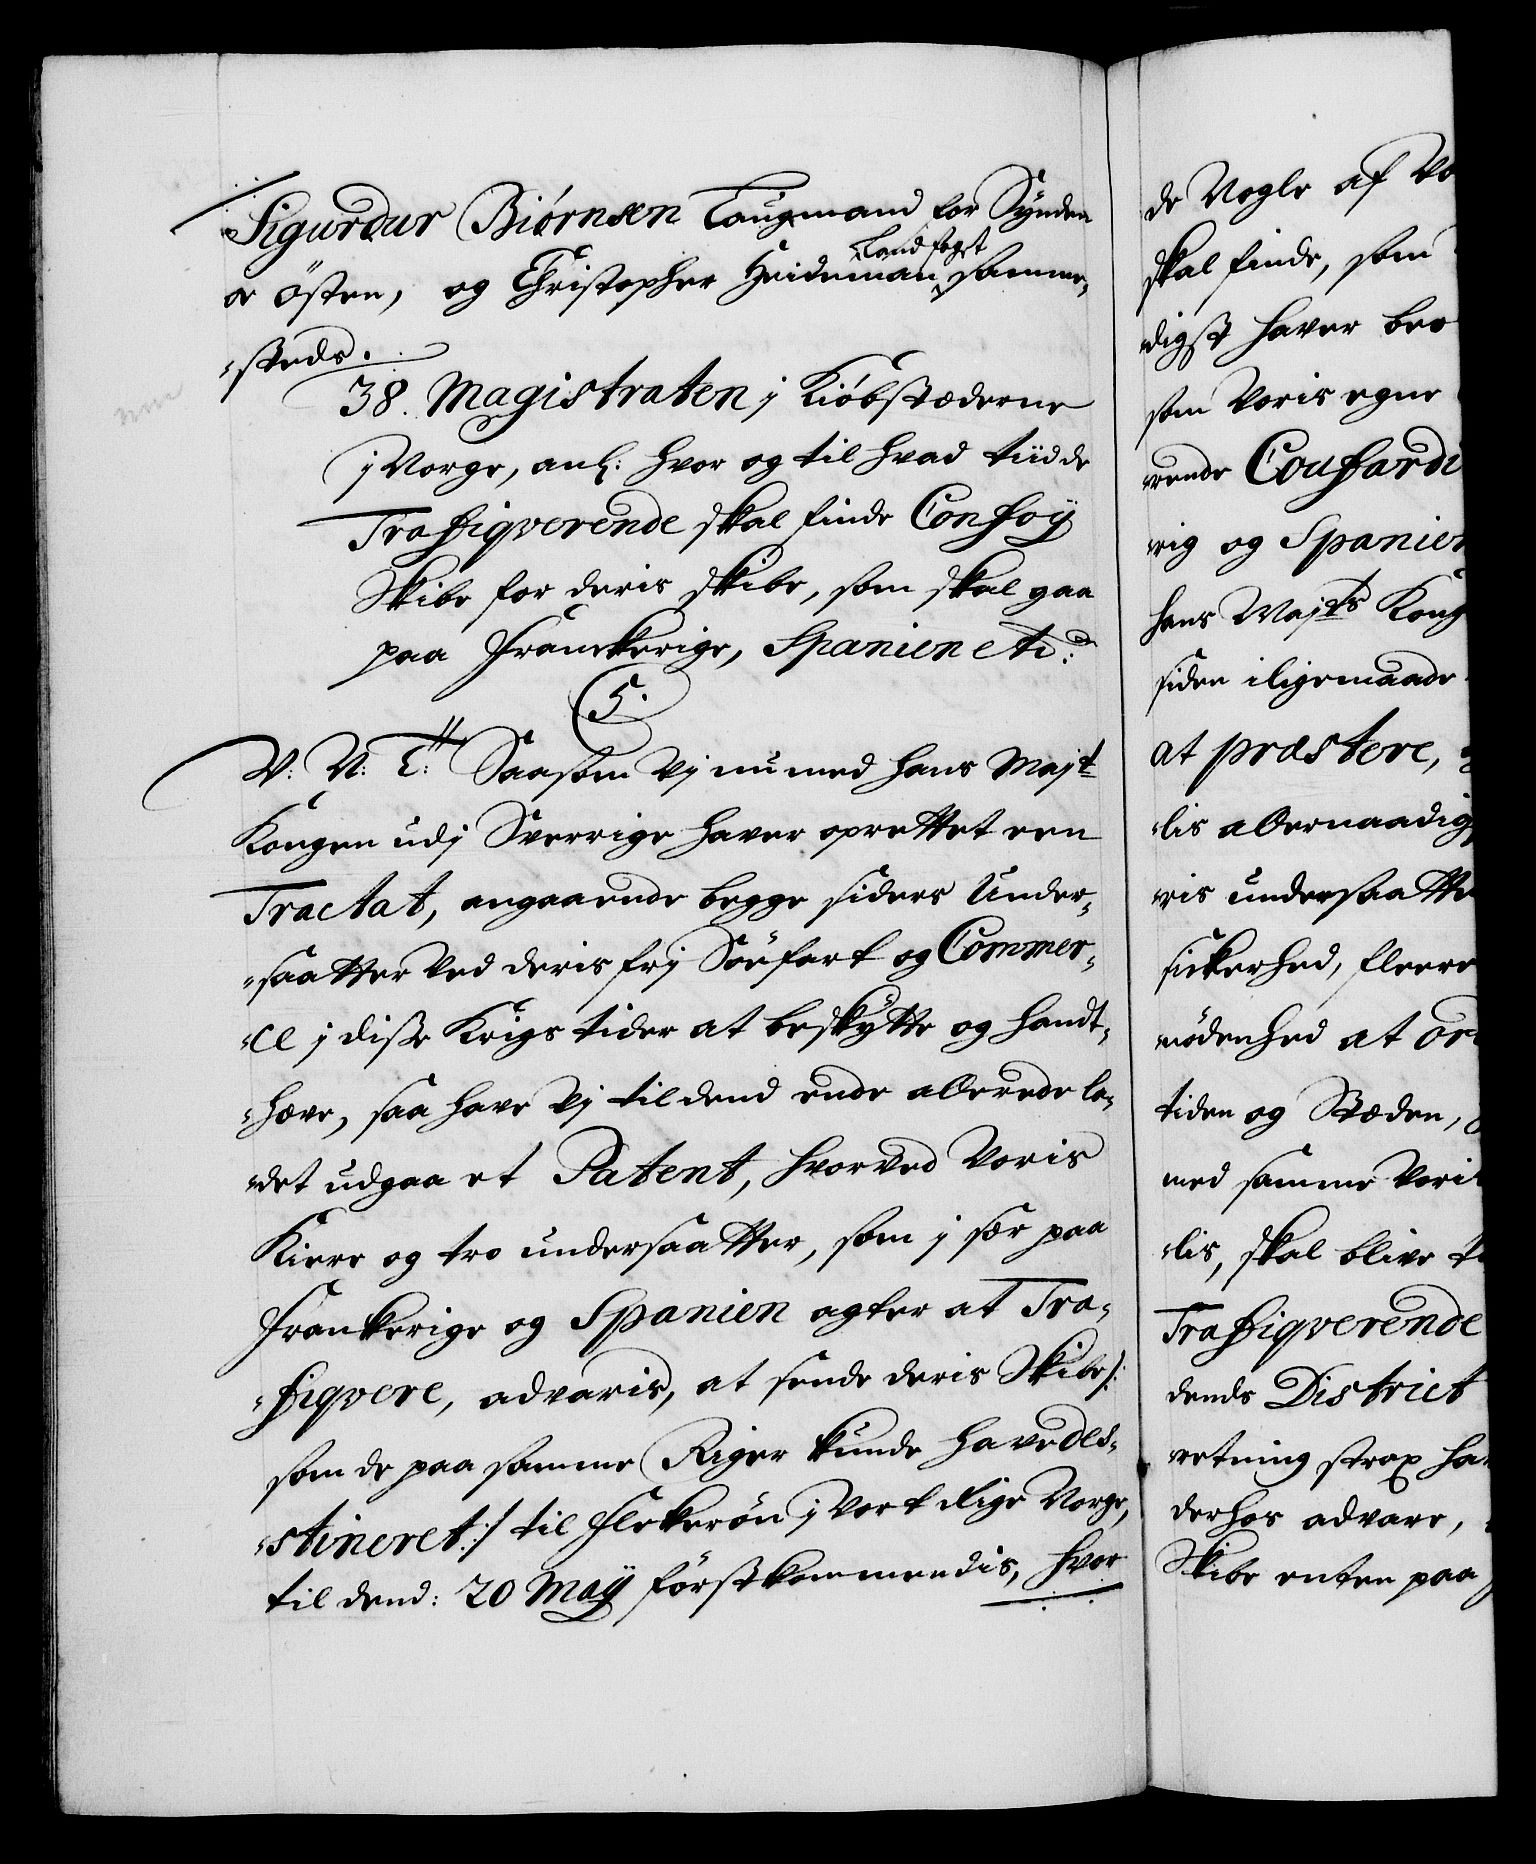 Sigurdur Biørnsen Laugmand for Synden
or Østen, og Christopher Heideman Landfogt samme-
-steds.
38. Magistraten j Kiøbstæderne
j Norge, anl: hvor og til hvad tiid de
Trafiqverende skal finde Confoÿ
Skibe for deris skibe, som skal gaa
paa Franckerige, Spanien etc:
5.
V: V: T: Saasom Vj nu med hans Majt
Kongen udj Sverrige haver oprettet een
Tractat, angaaende begge siders Under-
-saatter Ved deris frj Søefart og Commer-
-ce j disse Krigs tider at beskytte og handt-
-hæve, saa have Vj til dend ende allerede la-
-det udgaa et Patent, hvorved Voris
Kiere og tro undersaatter, som j sær paa
Frankerige og Spanien agter at Tra-
-fiqvere, advaris, at sende deris Skibe /:
som de paa samme Riger kunde have des-
-tineret :/ til Flekerøn j Vort Rige Norge,
til dend: 20 Maÿ førstkommendis, hvor
de Nogle af Vo
skal finde, som
-digst haver beo
som Voris egne
-rende Coufardi
-rig og Spanien
hans Majts Kong
siden iligemaade
at præstere,
-lis allernaadig
-ris undersaatte
sickerhed, fleere
-nødenhed at or
tiden og Stæden,
med samme Vori
-lis, skal blive
Trafiqverende
dends District
-retning strax ha
derhos advare,
Skibe enten paa